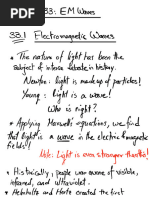 33: EM Waves
33.1 Electromagnetic Waves
* The nature of light has been the
subject of intense debate in history.
Newton: light is made up of particles!
Young: light is a wave!
Who is right?
* Applying Maxwell's equations, we find
that light is a wave in the electric & magnetic
fields!
Note: Light is even stranger than this!
* Historically, people were aware of visible,
infrared, and ultraviolet.
* Helmholtz and Hertz created the first